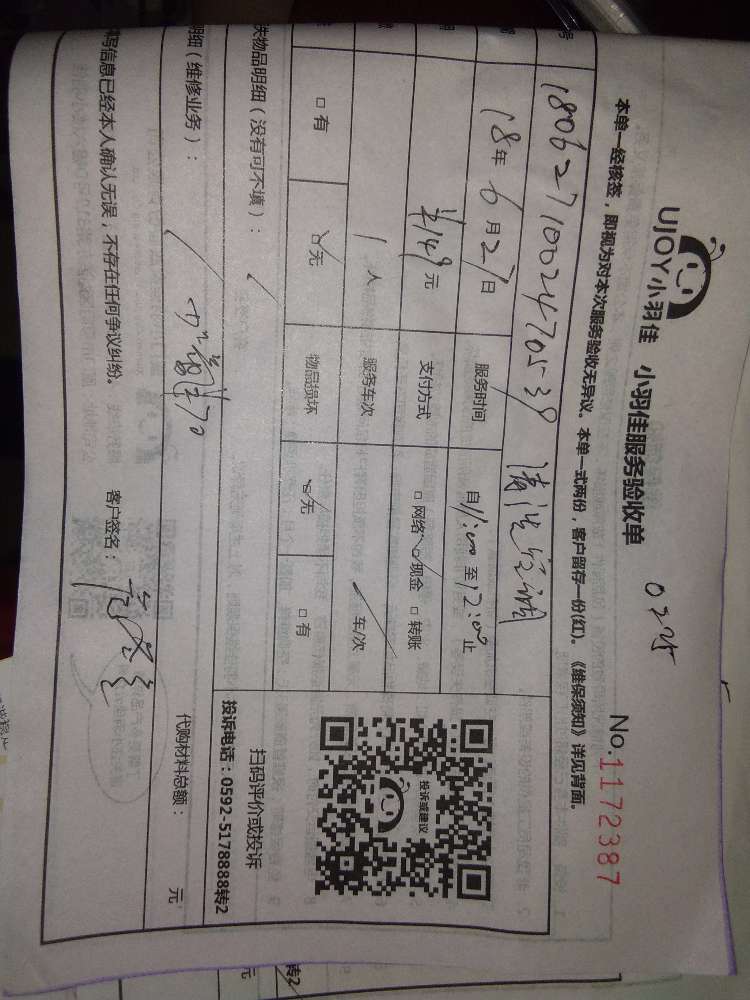 UJOY小羽佳 小羽佳服务验收单
0225
No.1172387
本单一经核签，即视为对本次服务验收无异议。本单一式两份，客户留存一份(红)。《维保须知》详见背面。
号 1806271002470539 清洗空调
18年6月27日 服务时间 自11:00至12:00止
149元 支付方式 □网络 ☑现金 □转账
1人 服务车次 / 车/次
□有 ☑无 物品损坏 ☑无 □有
投诉或建议
扫码评价或投诉
投诉电话：0592-5178888转2
失物品明细（没有可不填）： /
明细（维修业务）： /
代购材料总额： 元
填写信息已经本人确认无误，不存在任何争议纠纷。 客户签名：
元
转2